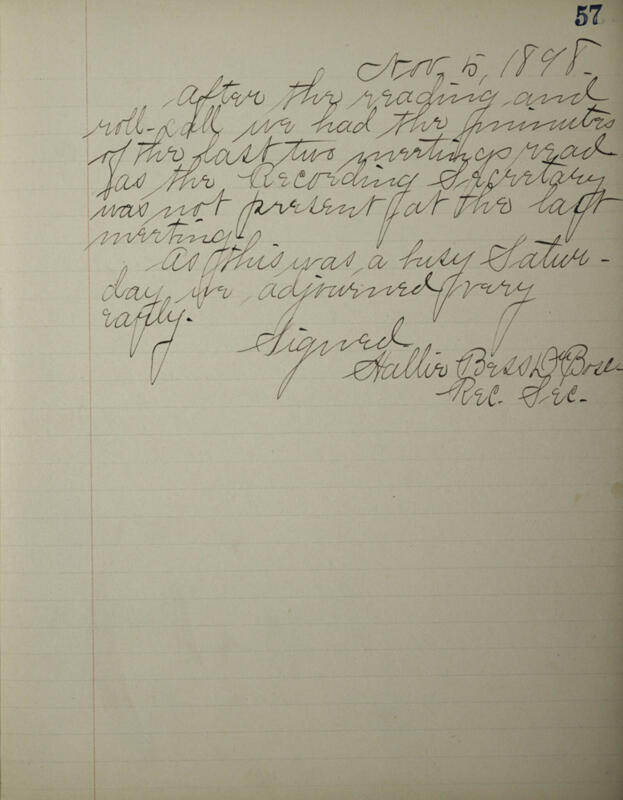 57
Nov. 5, 1898.
After the reading and
roll-call we had the minutes
of the last two meetings read
as the Recording Secretary
was not present at the last
meeting.
As this was a busy Satur-
day we adjourned very
early.
Signed
Hallie Bess DeBose-
Rec. Sec.-